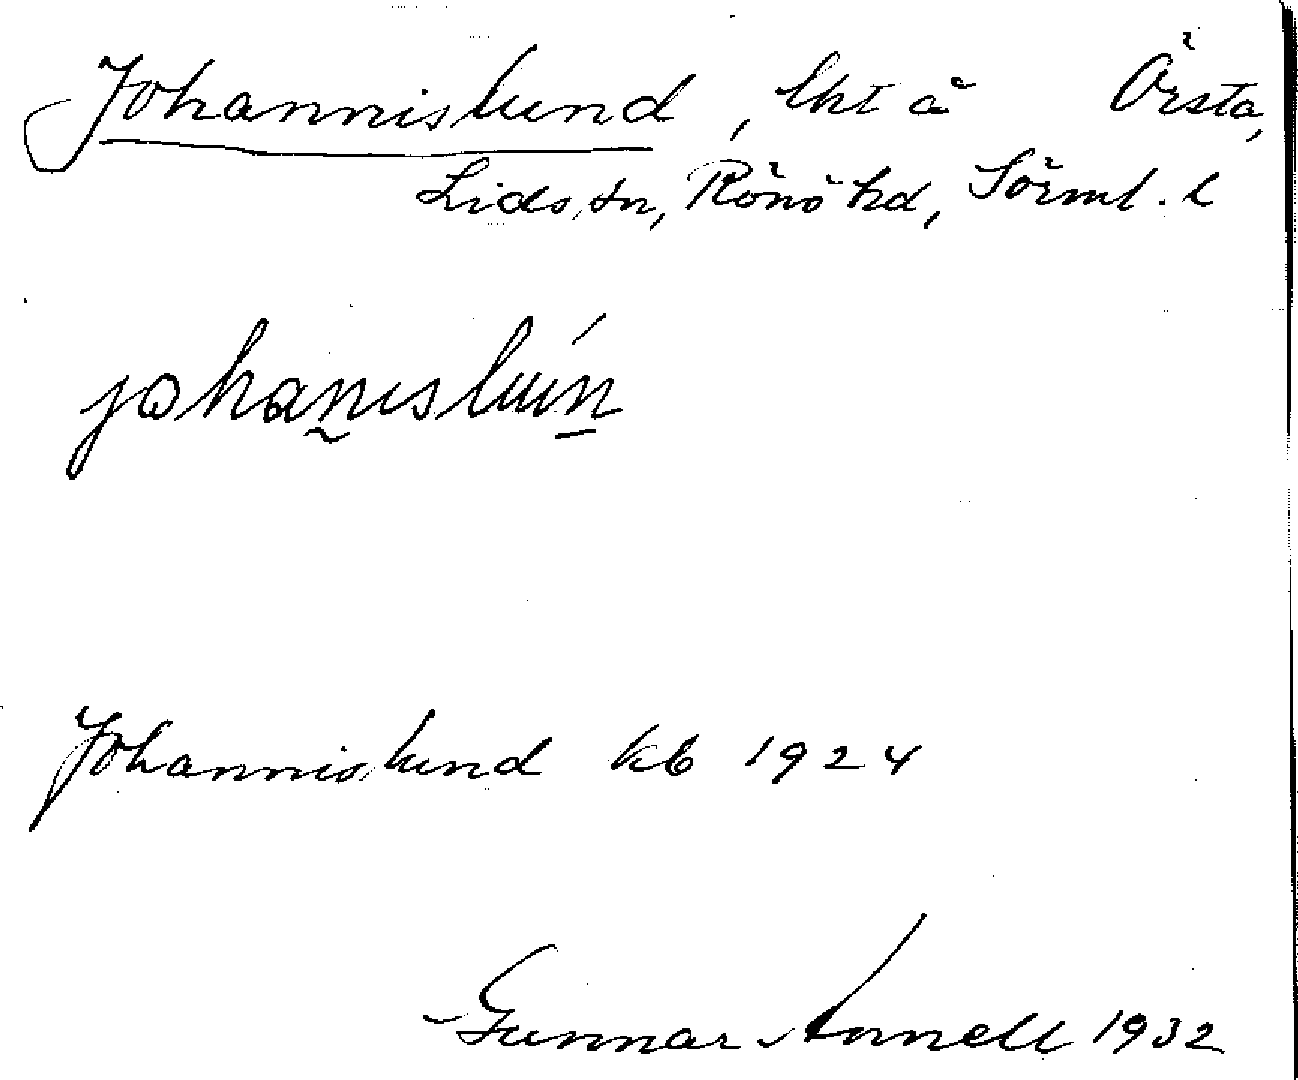 Johannislund, lht å Örsta,
Lids sn, Rönö hd, Sörml. l
johanislun
Johannislund kb 1924
Gunnar Annell 1932